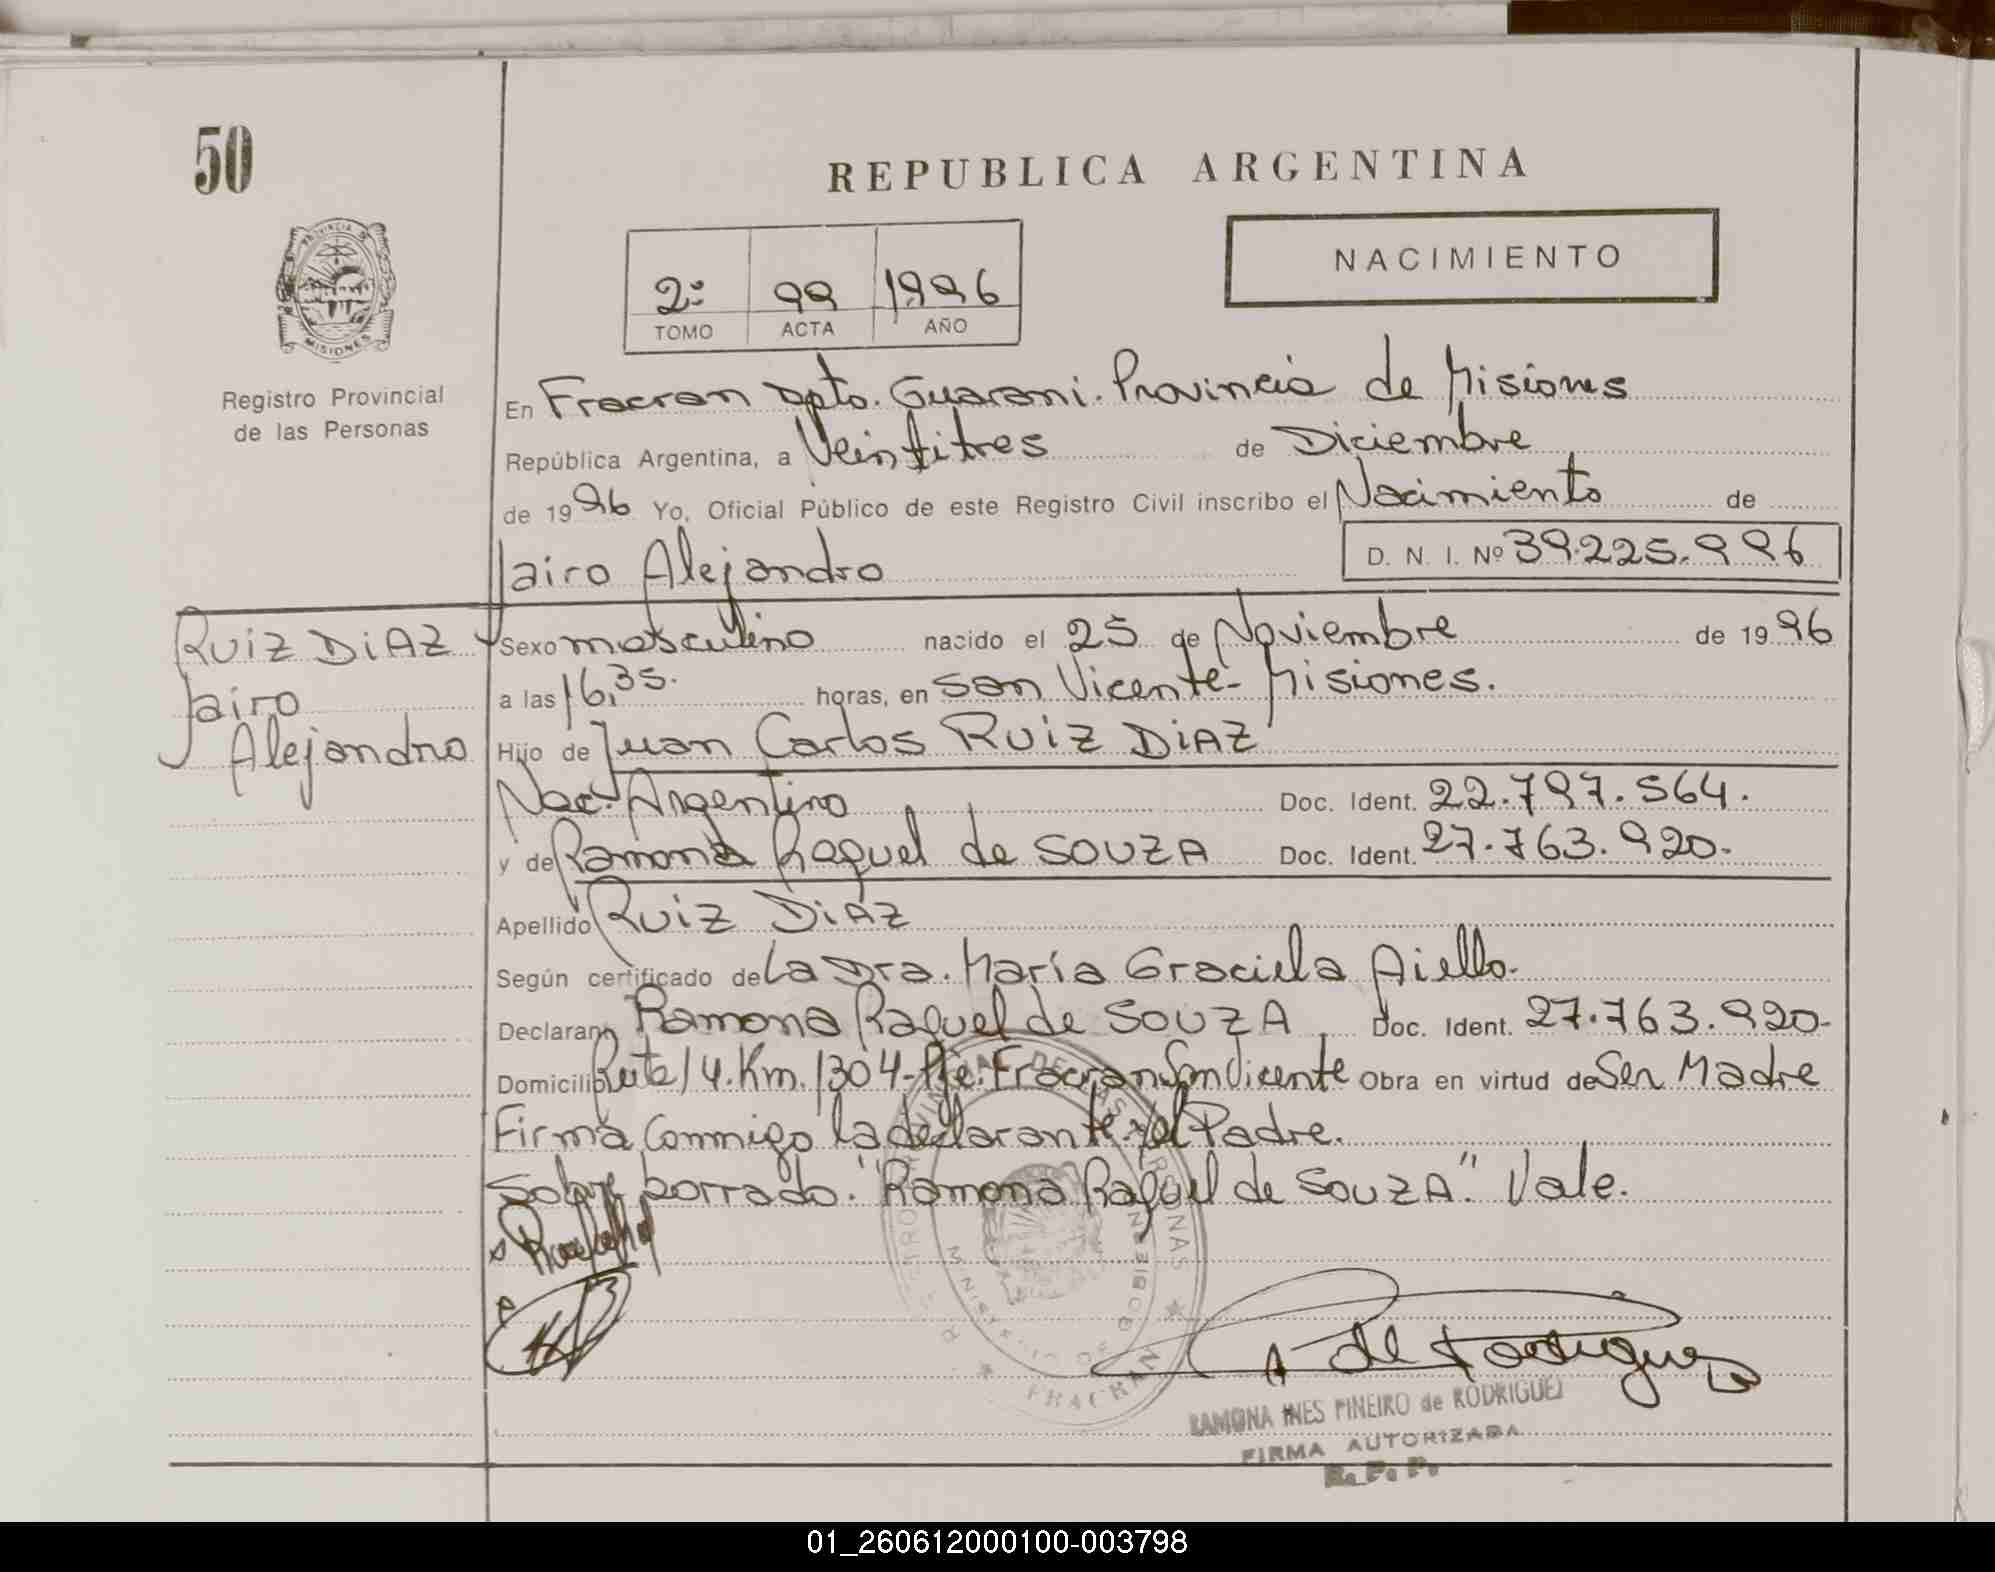 50
REPUBLICA ARGENTINA
NACIMIENTO
2º 99 1996
TOMO ACTA AÑO
PROVINCIA DE
MISIONES
Registro Provincial
de las Personas
En Fracran Dpto. Guarani. Provincia de Misiones
República Argentina, a Veintitres de Diciembre
de 1996 Yo, Oficial Público de este Registro Civil inscribo el Nacimiento de
Jairo Alejandro D. N. I. Nº 39.225.996
RUIZ DIAZ
Jairo
Alejandro
Sexo masculino nacido el 25 de Noviembre de 1996
a las 16,35. horas, en San Vicente - Misiones.
Hijo de Juan Carlos RUIZ DIAZ
Nac. Argentino Doc. Ident. 22.797.564.
y de Ramona Raquel de SOUZA Doc. Ident. 27.763.920.
Apellido RUIZ DIAZ
Según certificado de La Dra. María Graciela Aiello.
Declarann Ramona Raquel de SOUZA Doc. Ident. 27.763.920.
Domicilio Ruta 14. Km. 1304 - Pje. Fracran San Vicente Obra en virtud de Ser Madre
Firma Conmigo la declarante y el Padre.
Sobre borrado. "Ramona Raquel de SOUZA". Vale.
DE LAS PERSONAS
MINISTERIO DE GOBIERNO
FRACRAN
RAMONA INES PINEIRO de RODRIGUEZ
FIRMA AUTORIZADA
R. P. P.
01_260612000100-003798